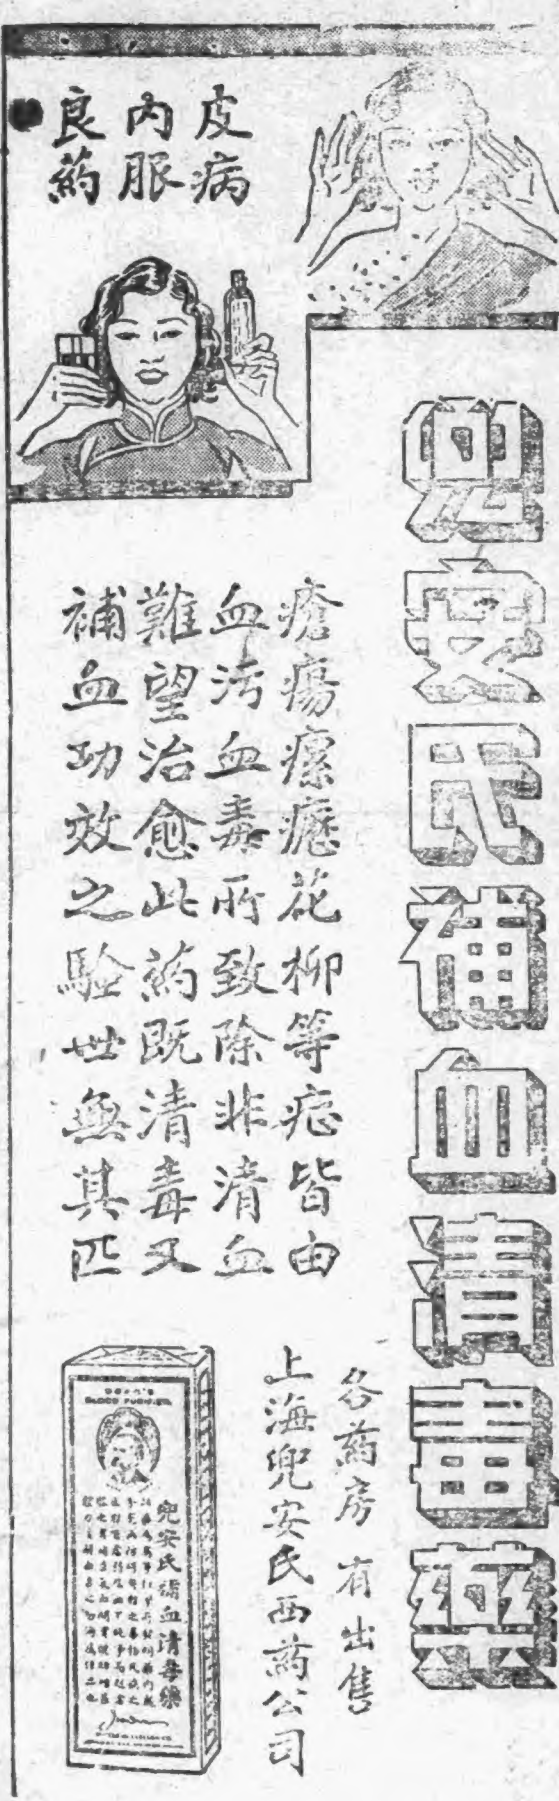 皮病
內服
良藥
兜安氏補血清毒藥
瘡瘍瘰癧花柳等症皆由
血污血毒所致除非清血
難望治愈此药既清毒又
補血功效之驗世無其匹
各葯房有出售
上海兜安氏西葯公司
DOAN'S
BLOOD PURIFIER
兜安氏補血清毒藥